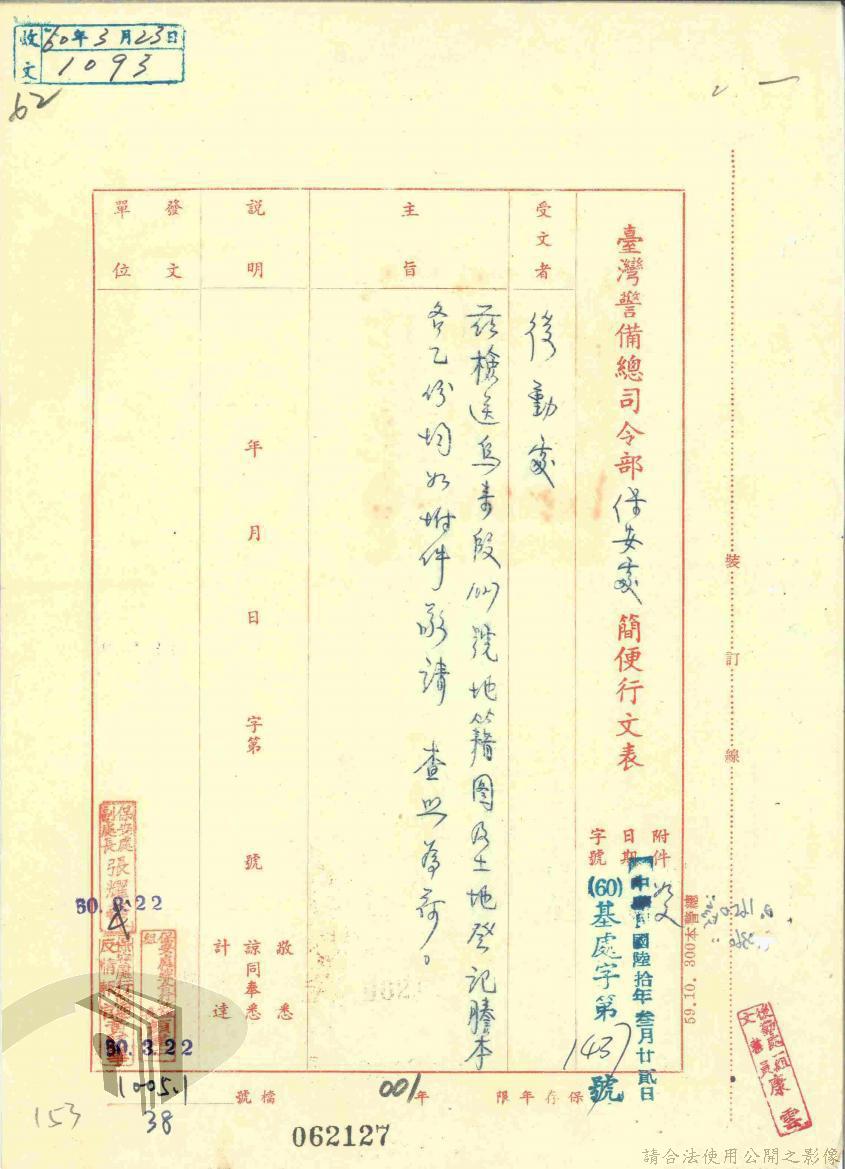 收文 60年3月23日
1093
62
臺灣警備總司令部保安處簡便行文表
附件 如文
日期 中華民國陸拾年叁月廿貳日
字號 (60)基處字第1437號
受文者
後勤處
主旨
茲檢送烏來段 號地籍圖及土地登記謄本
各乙份均如附件敬請 查照為荷。
說明
年 月 日 字第 號
敬悉
諒同奉悉
計達
發文單位
保安處副處長張耀
60.3.22
60.3.22
裝訂線
59.10.300本警總
後勤處一組文書員康雲
保存年限 年
001
檔號
1005.1
38
153
062127
請合法使用公開之影像